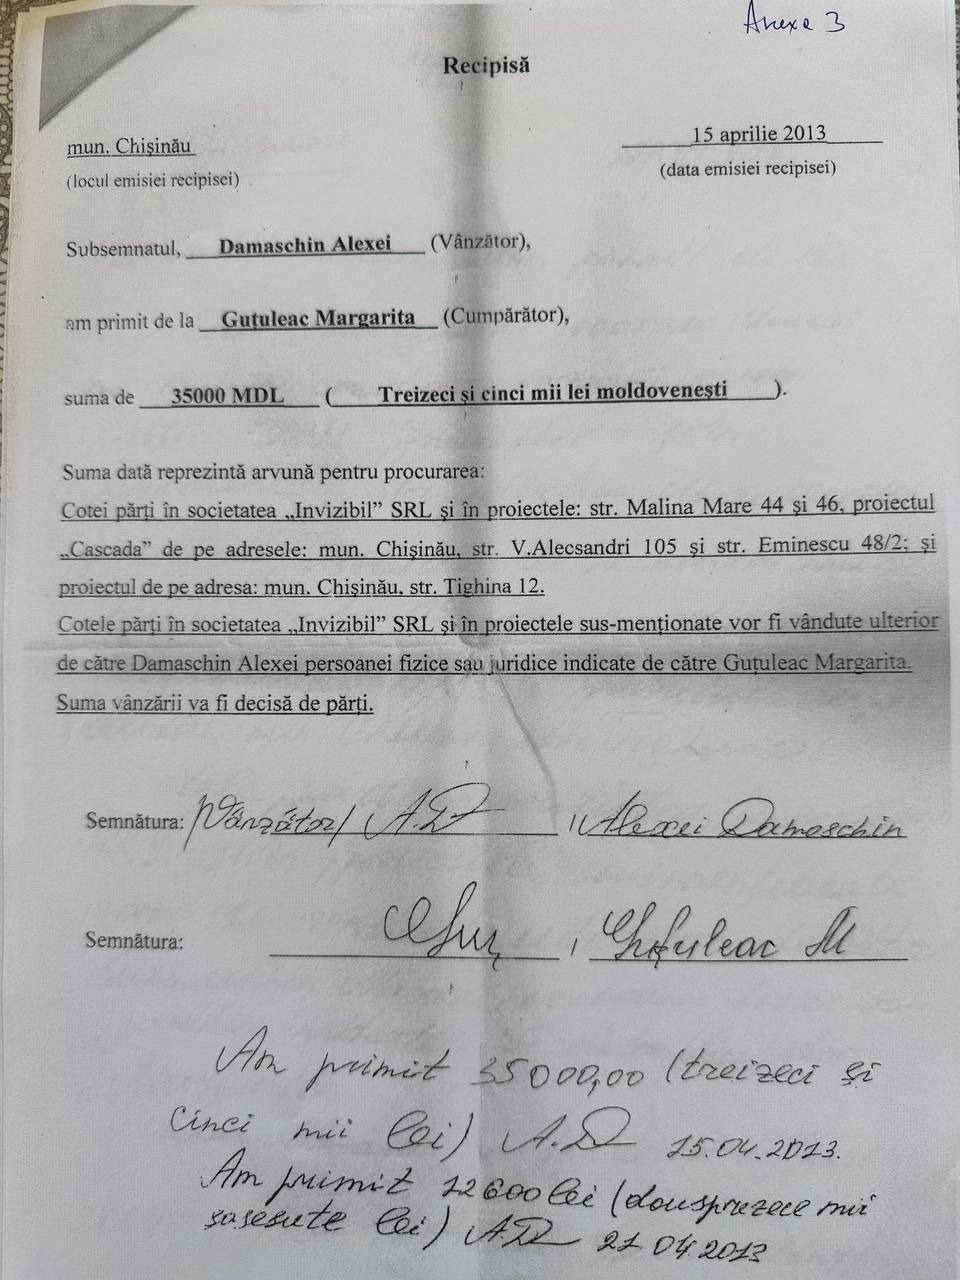 Anexa 3
Recipisă
mun. Chișinău
15 aprilie 2013
(locul emisiei recipisei)
(data emisiei recipisei)
Subsemnatul, Damaschin Alexei (Vânzător),
am primit de la Guțuleac Margarita (Cumpărător),
suma de 35000 MDL ( Treizeci și cinci mii lei moldovenești ).
Suma dată reprezintă arvună pentru procurarea:
Cotei părți în societatea „Invizibil” SRL și în proiectele: str. Malina Mare 44 și 46, proiectul
„Cascada” de pe adresele: mun. Chișinău, str. V.Alecsandri 105 și str. Eminescu 48/2; și
proiectul de pe adresa: mun. Chișinău, str. Tighina 12.
Cotele părți în societatea „Invizibil” SRL și în proiectele sus-menționate vor fi vândute ulterior
de către Damaschin Alexei persoanei fizice sau juridice indicate de către Guțuleac Margarita.
Suma vânzării va fi decisă de părți.
Semnătura: /Vânzător/ A.D / Alexei Damaschin
Semnătura: Guț / Guțuleac M
Am primit 35000,00 (treizeci și
cinci mii lei) A.D 15.04.2013.
Am primit 12600 lei (douăsprezece mii
șasesute lei) A.D 21 04 2013